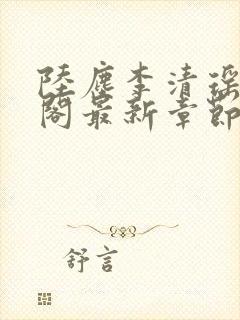 陆尘李清瑶
阁最新章节
舒言